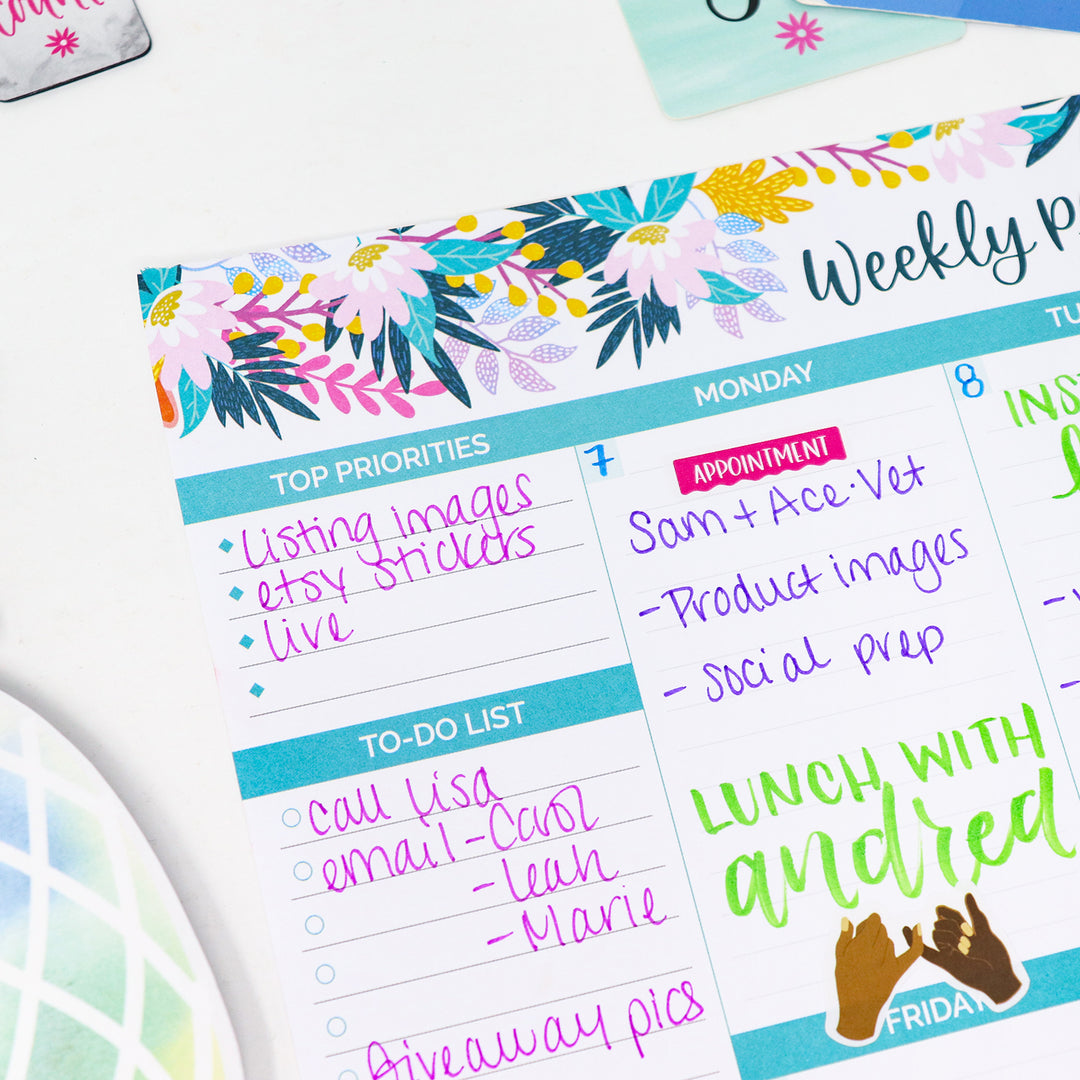 count
Weekly
TOP PRIORITIES
listing images
etsy stickers
live
TO-DO LIST
call Lisa
email - Carol
- Leah
- Marie
Giveaway pics
MONDAY
7
APPOINTMENT
Sam + Ace · Vet
- Product images
- social prep
LUNCH WITH
andrea
FRIDAY
8